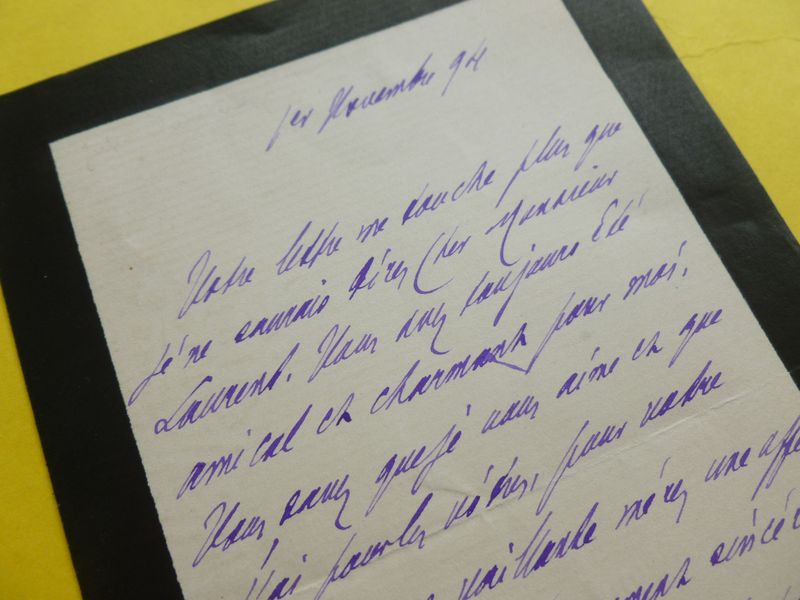 1er Novembre 94
Votre lettre me touche plus que
je ne saurais dire, Cher Monsieur
Laurent. Vous avez toujours été
amical et charmant pour moi.
Vous savez que je vous aime et que
j'ai pour les vôtres, pour votre
vaillante mère, une affe
sincèr